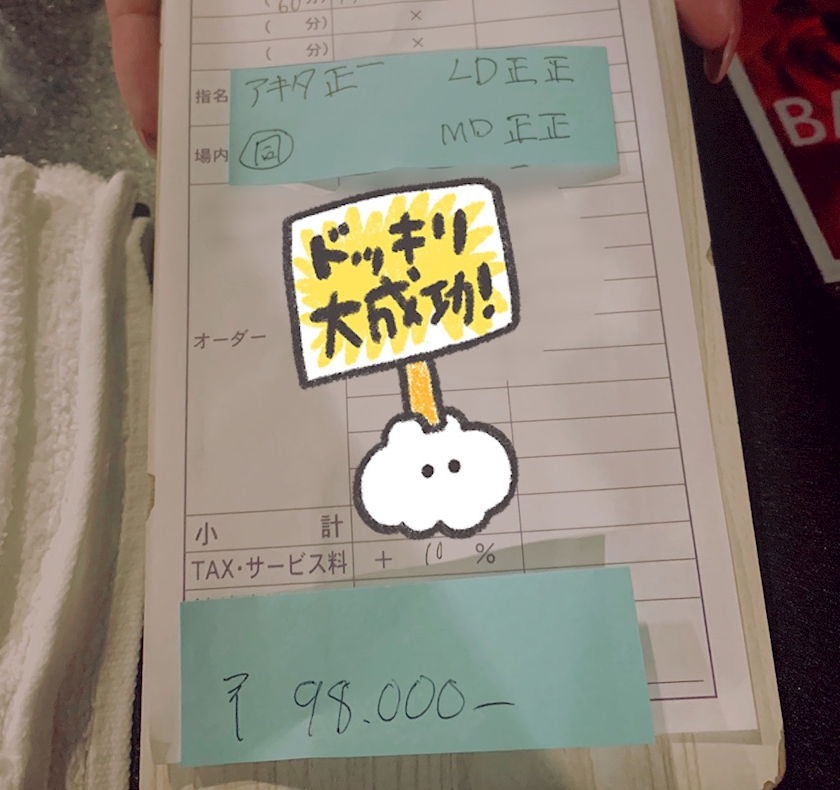 (60分)
(　　分) ×
(　　分) ×
指名 アキタ 正一 LD 正正
場内 同 MD 正正
ドッキリ
大成功!
オーダー
小計
TAX・サービス料 + 10 %
₹ 98.000-
BA